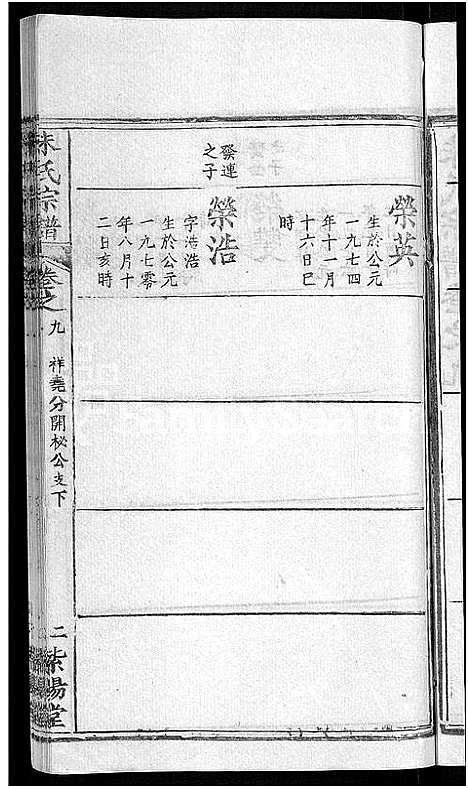 榮英
生於公元
一九七四
年十一月
十六日巳
時
發連
之子
榮浩
字浩浩
生於公元
一九七零
年八月十
二日亥時
朱氏宗譜
卷之九
祥堯分開秘公支下
二
紫陽堂